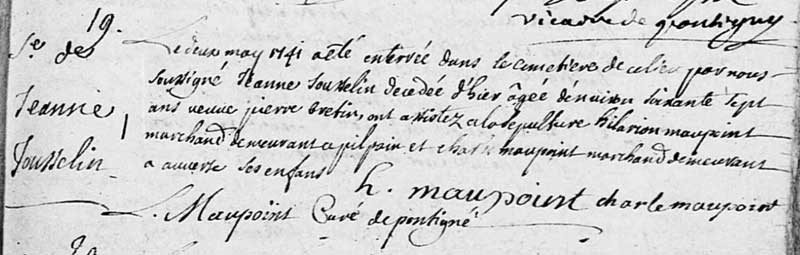 vicaire de pontigny
19.
Se. de
Jeanne
Jousselin
Le deux may 1741 a eté enterrée dans le cemetiere de ce lieu par nous
soussigné Jeanne Jousselin decedée d'hier âgée d'environ soixante sept
ans veuve pierre bretin, ont assistez a la sepulture hilarion maupoint
marchand demeurant a pilpain et charle maupoint marchand demeurant
a auverse ses enfans
h. maupoint charle maupoint
L. Maupoint Curé de pontigné